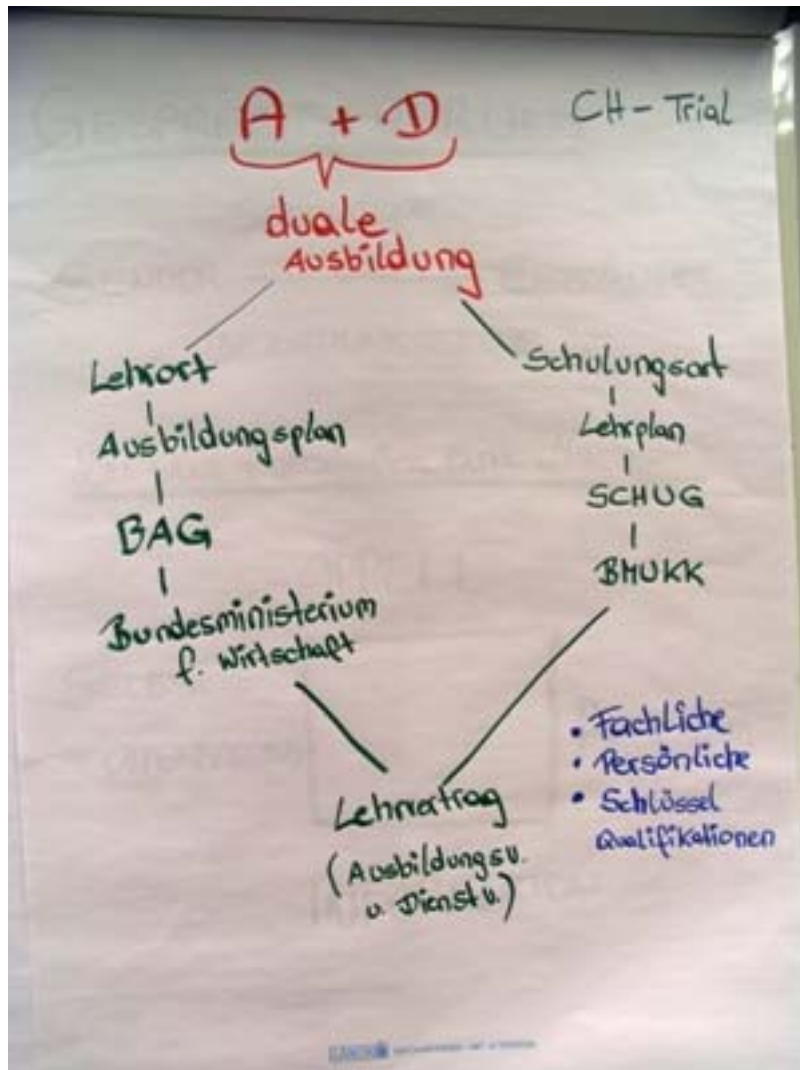 A + D
CH - Trial
duale
Ausbildung
Lehrort
Ausbildungsplan
BAG
Bundesministerium
f. Wirtschaft
Schulungsort
Lehrplan
SCHUG
BMUKK
Lehrvertrag
(Ausbildungsv.
u. Dienstv.)
• Fachliche
• Persönliche
• Schlüssel
Qualifikationen